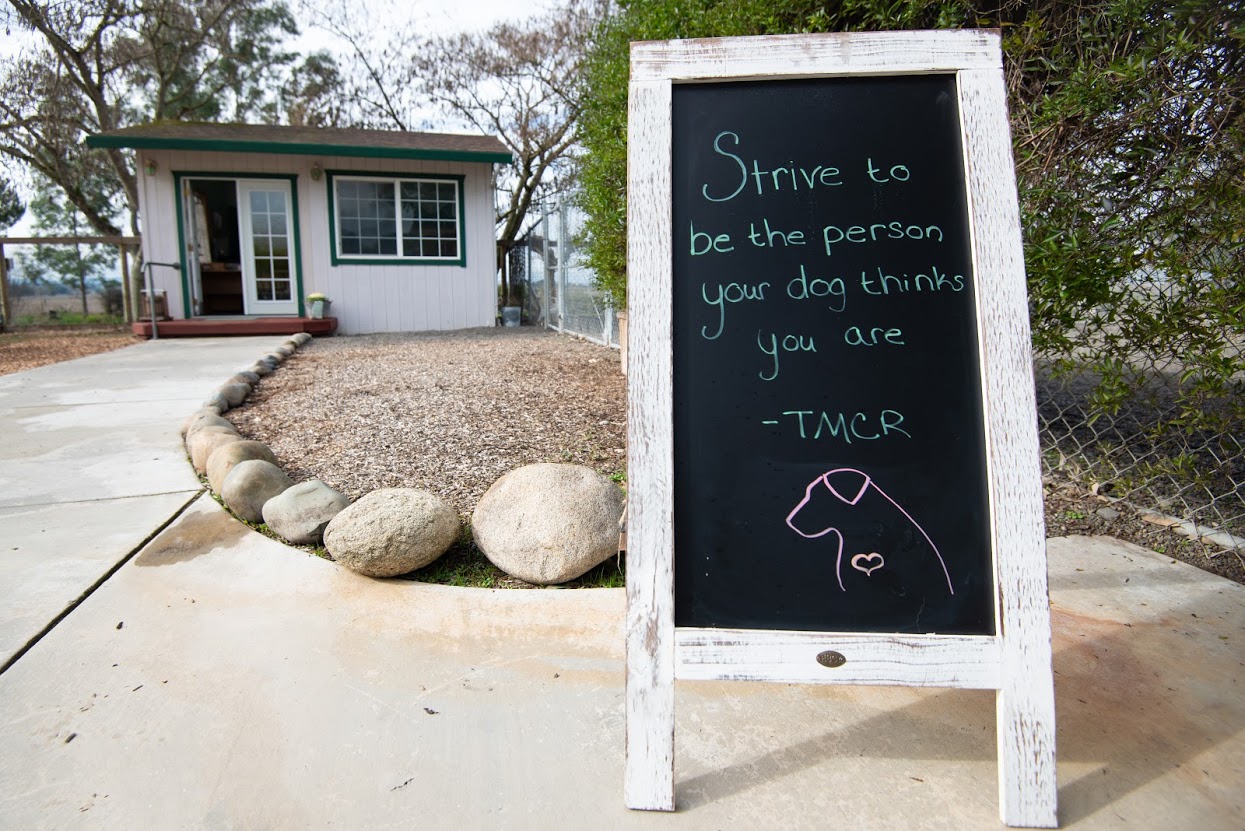 Strive to
be the person
your dog thinks
you are
-TMCR